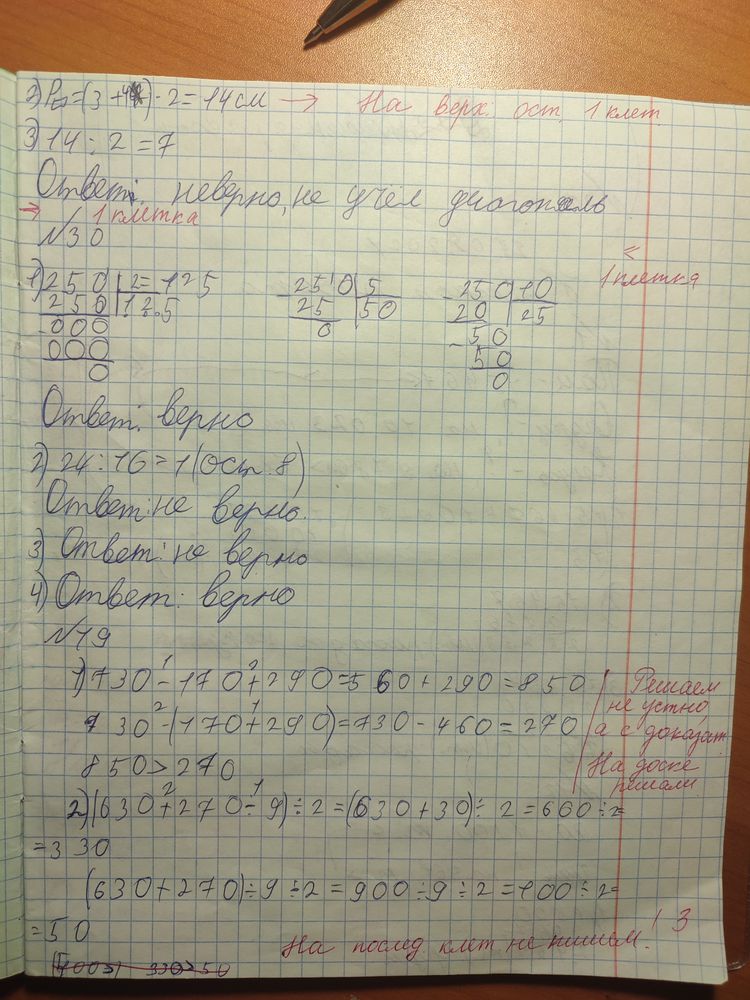 2) P▭=(3+4)·2=14см → На верх. ост. 1 клет.
3) 14:2=7
Ответ: неверно, не учел диагональ
→ 1 клетка
N30
← 1 клетка
1) 250 2=125 250 5 250 10
250 125 25 50 20 25
000 0 50
000 50
0 0
Ответ: верно
2) 24:16=1(ост. 8)
Ответ: не верно.
3) Ответ: не верно
4) Ответ: верно
N19
1) 730-170+290=560+290=850
730-(170+290)=730-460=270
850>270
Решаем
не устно,
а с доказат.
На доске
решали
2) (630+270÷9)÷2=(630+30)÷2=660÷2=
=330
(630+270)÷9÷2=900÷9÷2=100÷2=
=50
330>50
На послед. клет. не пишем! 3